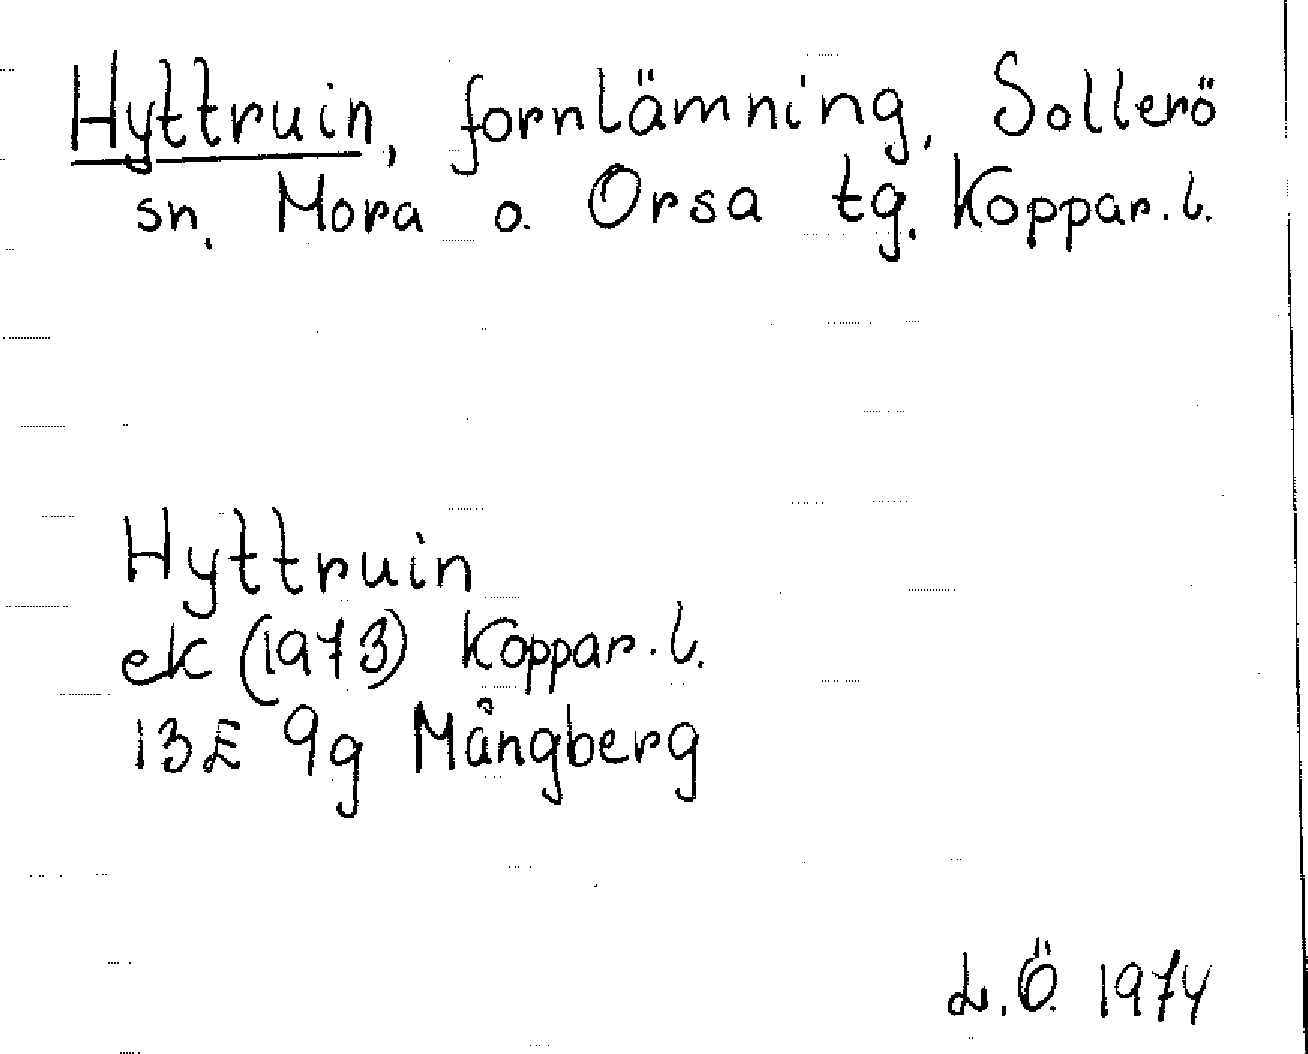 Hyttruin, fornlämning, Sollerö
sn, Mora o. Orsa tg. Koppar. l.
Hyttruin
ek (1973) Koppar. l.
13E 9g Mångberg
L.Ö. 1974